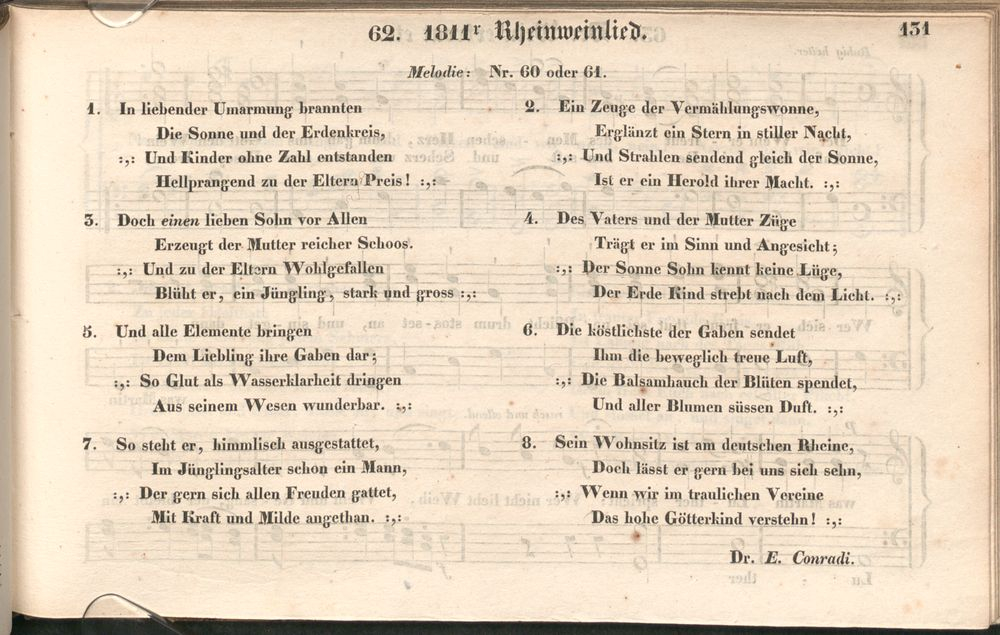 62. 1811r Rheinweinlied.
131
Melodie: Nr. 60 oder 61.
1. In liebender Umarmung brannten
Die Sonne und der Erdenkreis,
:,: Und Kinder ohne Zahl entstanden
Hellprangend zu der Eltern Preis! :,:
2. Ein Zeuge der Vermählungswonne,
Erglänzt ein Stern in stiller Nacht,
:,: Und Strahlen sendend gleich der Sonne,
Ist er ein Herold ihrer Macht. :,:
3. Doch einen lieben Sohn vor Allen
Erzeugt der Mutter reicher Schoos.
:,: Und zu der Eltern Wohlgefallen
Blüht er, ein Jüngling, stark und gross :,:
4. Des Vaters und der Mutter Züge
Trägt er im Sinn und Angesicht;
:,: Der Sonne Sohn kennt keine Lüge,
Der Erde Kind strebt nach dem Licht. :,:
5. Und alle Elemente bringen
Dem Liebling ihre Gaben dar;
:,: So Glut als Wasserklarheit dringen
Aus seinem Wesen wunderbar. :,:
6. Die köstlichste der Gaben sendet
Ihm die beweglich treue Luft,
:,: Die Balsamhauch der Blüten spendet,
Und aller Blumen süssen Duft. :,:
7. So steht er, himmlisch ausgestattet,
Im Jünglingsalter schon ein Mann,
:,: Der gern sich allen Freuden gattet,
Mit Kraft und Milde angethan. :,:
8. Sein Wohnsitz ist am deutschen Rheine,
Doch lässt er gern bei uns sich sehn,
:,: Wenn wir im traulichen Vereine
Das hohe Götterkind verstehn! :,:
Dr. E. Conradi.